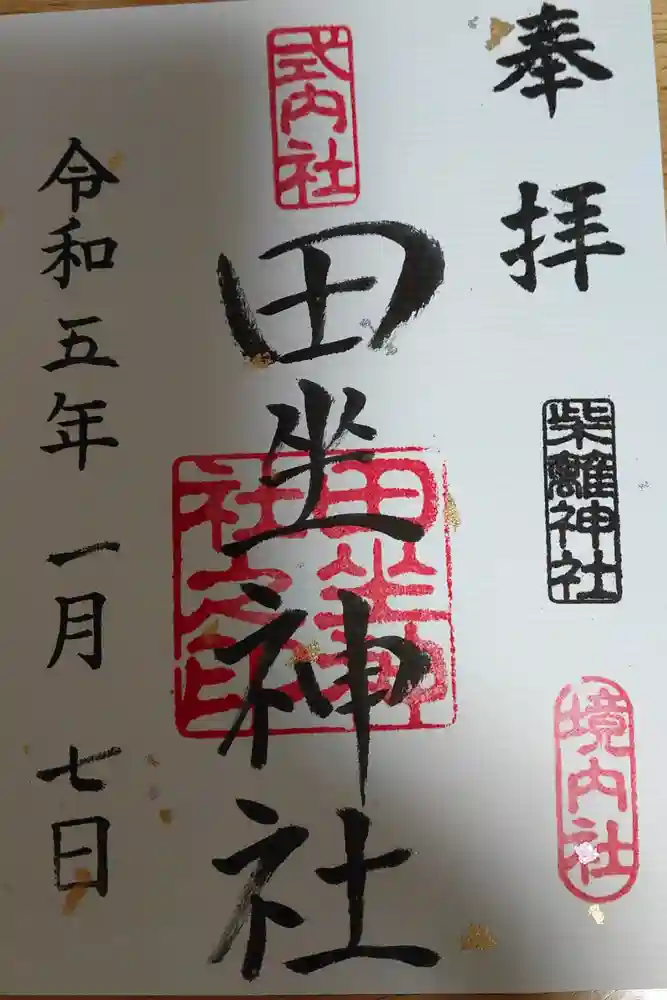 奉拝
柴籬神社
境内社
式内社
田坐神社
田坐神社之印
令和五年一月七日